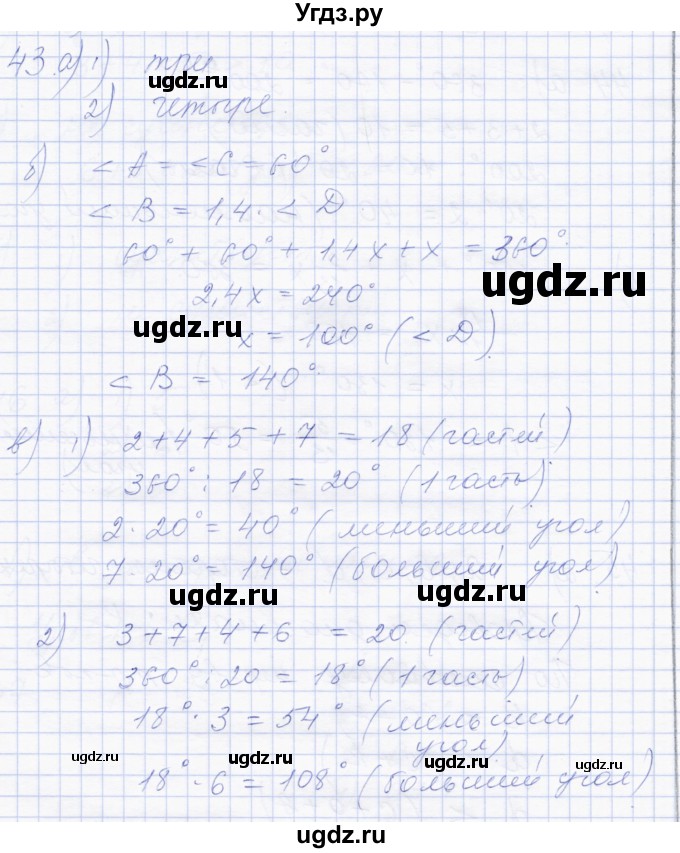 Угдз.ру
43.а) 1) три
ugdz.ru
2) четыре.
б) < A = < C = 60°
< B = 1,4 · < D
60° + 60° + 1,4x + x = 360°
ugdz.ru
2,4x = 240°
ugdz.ru
x = 100° (< D)
< B = 140°
в) 1) 2+4+5+7 = 18 (частей)
360° : 18 = 20° (1 часть)
2 · 20° = 40° (меньший угол)
7 · 20° = 140° (больший угол)
ugdz.ru ugdz.ru
2) 3+7+4+6 = 20 (частей)
360° : 20 = 18° (1 часть)
18° · 3 = 54° (меньший
угол)
ugdz.ru ugdz.ru ugdz.ru
18° · 6 = 108° (больший угол)
ugdz.ru